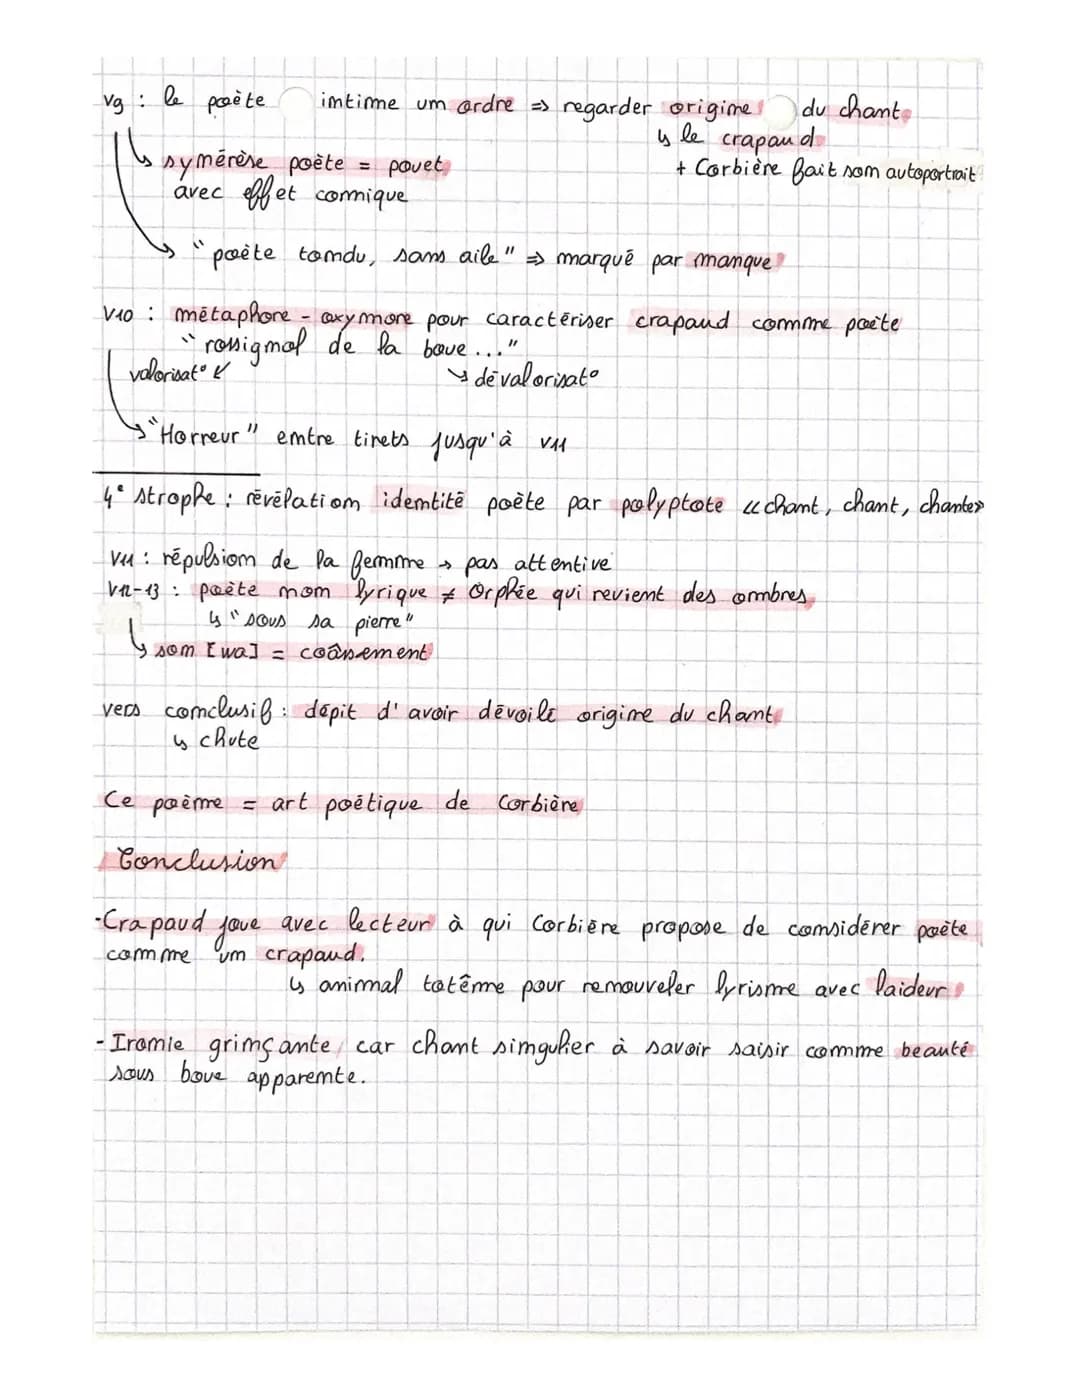 v9 : le poète intime un ordre => regarder origine du chant
↳ le crapaud
↳ synérèse poète = pouet
+ Corbière fait son autoportrait
avec effet comique
↳ "poète tondu, sans aile" => marqué par manque
v10 : métaphore - oxymore pour caractériser crapaud comme poète
"rossignol de la boue..."
valorisat° ↙ ↘ dévalorisat°
↳ "Horreur" entre tirets jusqu'à v11
4e strophe : révélation identité poète par polyptote «chant, chant, chanter»
v11 : répulsion de la femme → pas attentive
v12-13 : poète non lyrique ≠ Orphée qui revient des ombres
↳ "sous sa pierre"
↳ son [wa] = coâssement
vers conclusif : dépit d'avoir dévoilé origine du chant
↳ chute
Ce poème = art poétique de Corbière
Conclusion
-Crapaud joue avec lecteur à qui Corbière propose de considérer poète
comme un crapaud.
↳ animal totême pour renouveler lyrisme avec laideur
- Ironie grinçante, car chant singulier à savoir saisir comme beauté
sous boue apparente.